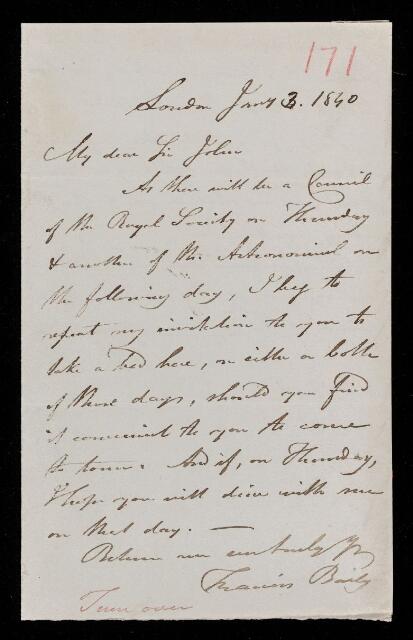 171
London Jany 3. 1840
My dear Sir John
As there will be a Council
of the Royal Society on Thursday
& another of the Astronomical on
the following day, I beg to
repeat my invitation to you to
take a bed here, on either or both
of those days, should you find
it convenient to you to come
to town: And if, on Thursday,
I hope you will dine with me
on that day. —
Believe me
Francis Baily
Turn over